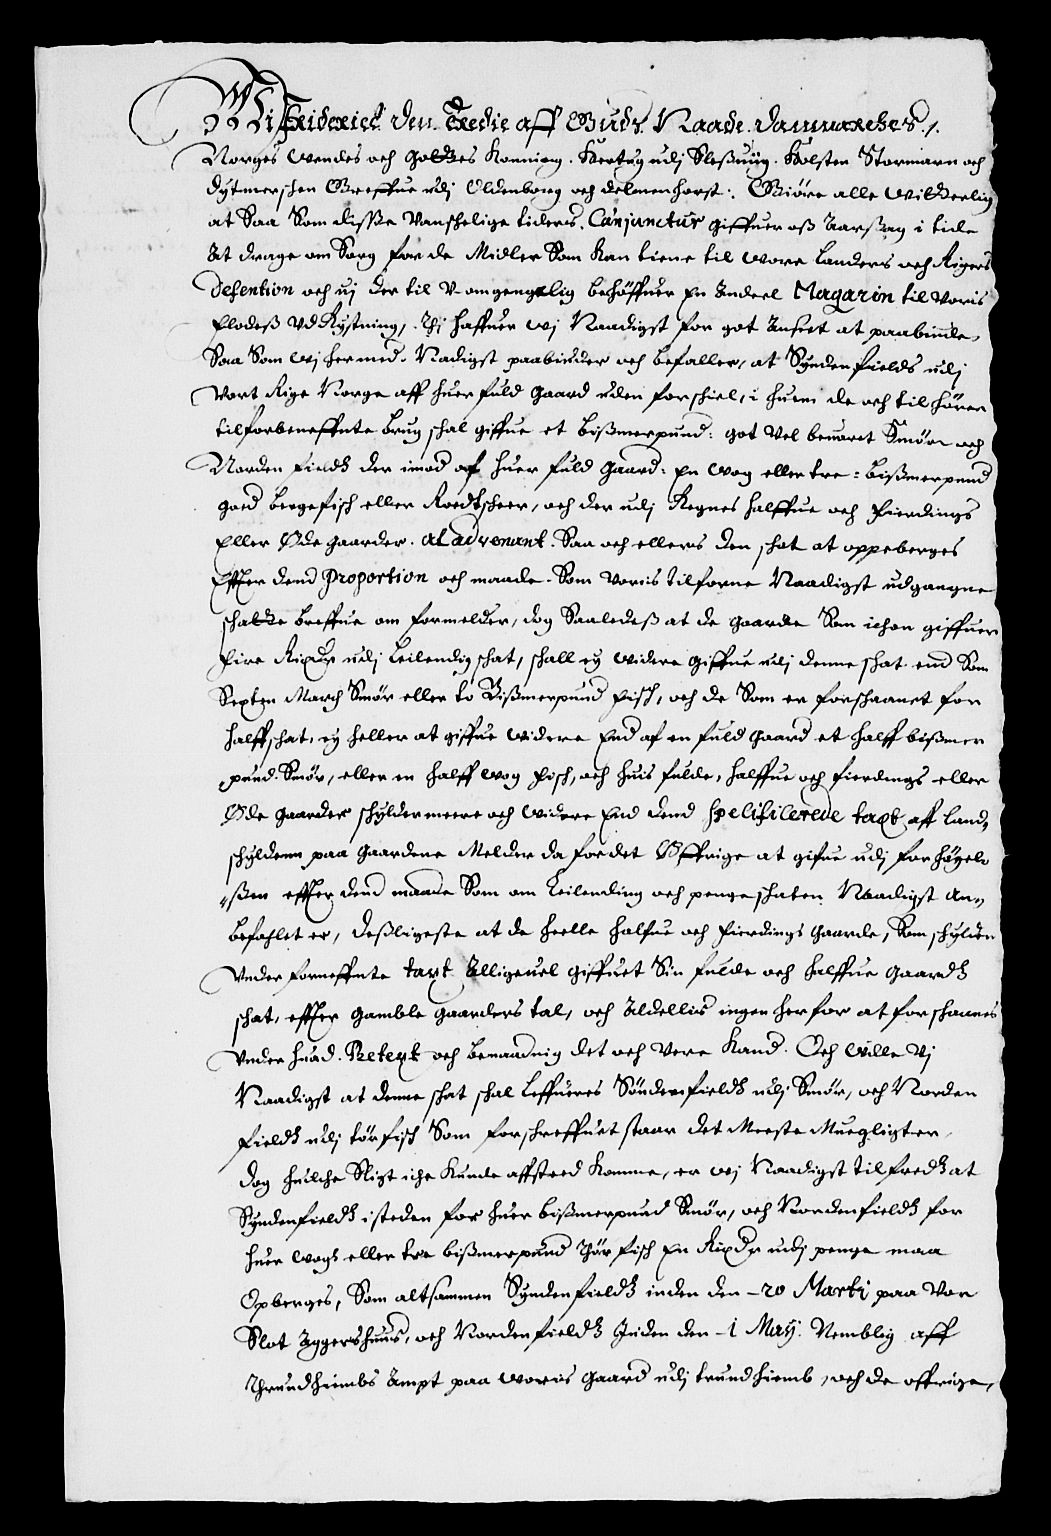 Wi Friderich den Tredie aff Guds Naade. Danmarches /.
Norges Wendes och Gottes Konning. Hertug udj Sleßuiig. Holsten Stormarn och
Dytmerschen Greffue udj Oldenborg och Delmenhorst: Giøre alle witterlig
at Saa Som disse Vanschelige tiders. Canjunctur giffuer oß Aarsag i tide
At drage om Sorg for de Midler Som Kan tiene til wore Landers och Rigers
Defention och vj der til V-omgengelig behøffuer En Andeel Magazin til Voris
Flodeß VdRystning, Thi haffuer wj Naadigst for got Anseet at paabiude,
Saa Som wj hermed. Nadigst paabiuder och befaller, at Syndenfields udj
Vort Rige Norge aff huer fuld gaard uden forschiel, i huem de och tilhører
til forbeneffnte brug schal giffue et Bißmerpund: got vel beuaret Smør och
Norden fieldß der imod af huer fuld Gaard: En wog eller tre: bißmerpund
goed bergefisch eller Roedtscheer, och der udj Regnes halffue och fierdings
Eller Øde gaarder. al advenant. Saa och ellers den schat at oppeberges
Effter dend Proportion och maade. Som Voris tilforne Naadigst udgangne
schatte breffue om formelder, dog Saaledeß at de gaarde Som ichon giffuer
fire Rixdr udj Leilendig schat, schall ey widere giffue udj denne schat end Som
Sexten March Smør eller to Bißmerpund fisch, och de Som er forschaanet for
halff schat, ey heller at giffue widere End af en fuld gaard et halff bißmer
pund. Smør, eller en halff wog fisch, och huis fulde, halffue och fierdings eller
Øde gaarder schylder meere och widere End dend spetificerede taxt aff Land-
schyldenn paa gaardene Melder da fordet Øffrige at gifue udj forhøyel-
-ßen effter dend maade Som om Leilending och pengeschaten Naadigst an-
befahlet er, deßligeste at de heelle halfue och fierdings gaarde, Som schylder
Vnder forneffnte taxt Alligeuel giffuet Sin fulde och halffue gaardß
schat, effter gamble gaarders tal, och Aldellis ingen herfor at forschaanes
Vnder huad. Pretext och benaadnig det och Vere Kand. Och wille Vj
Naadigst at denne schat schal leffueres Søndenfieldß udj Smør, och Norden
fieldß udj tørfisch Som forschreffuet staar det Meeste Mueglligt er,
dog huilche Sligt iche Kunde affsteed Komme, er wj Naadigst tilfredß at
Syndenfieldß isteden for huer bißmerpund Smør, och Nordenfieldß for
huer wogß eller tre bißmerpund Thørfisch En Rixdr udj penge maa
Opberges, Som altsammen Syndenfieldß inden den -20 Martj paa Vor
Slot Aggershuus, och Nordenfieldß Inden den -1 May. Nemblig aff
Thrundhiembs Ampt paa Woris Gaard udj trundhiemb, och de offrige,